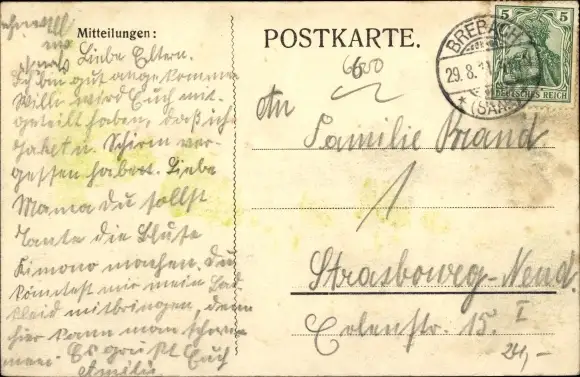 Mitteilungen:
Liebe Eltern.
Ich bin gut angekommen
Willi wird Euch mit-
geteilt haben, daß ich
Jaket u. Schirm ver-
gessen habe. Liebe
Mama du sollst
Tante die Bluse
Kimono machen. Du
könntest mir mein Bad
kleid mitbringen, denn
hier kann man schwim
men. Es grüßt Euch
Amilie
POSTKARTE.
6500
BREBACH
29.8.11
* (SAAR)
5 5
DEUTSCHES REICH
An
Familie Brand
1
Strasbourg-Neud.
Colenstr. 15. I
24,-